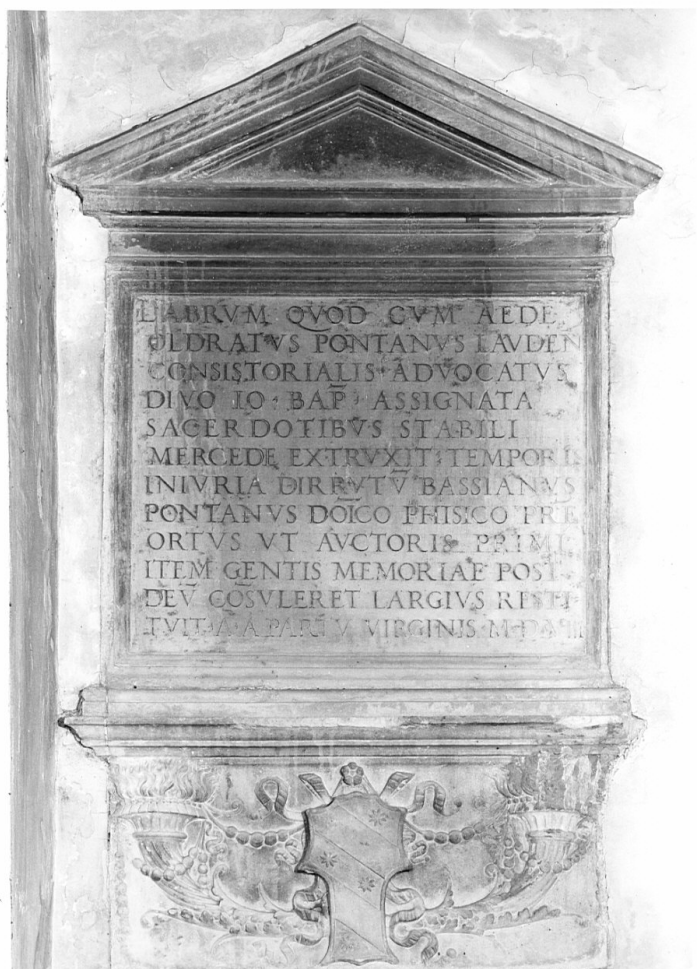 LABRVM QVOD CVM AEDE
OLDRATVS PONTANVS LAVDEN
CONSISTORIALIS · ADVOCATVS
DIVO IO · BAP̄ ASSIGNATA
SACERDOTIBVS STABILI
MERCEDE EXTRVXIT · TEMPORIS
INIVRIA DIRRVTV̄ BASSIANVS
PONTANVS DOĪCO PHISICO PRE
ORTVS VT AVCTORIS PRIMI
ITEM GENTIS MEMORIAE POST
DEV̄ CŌSVLERET LARGIVS RESTI
TVIT · A · A PARTV VIRGINIS · M ·